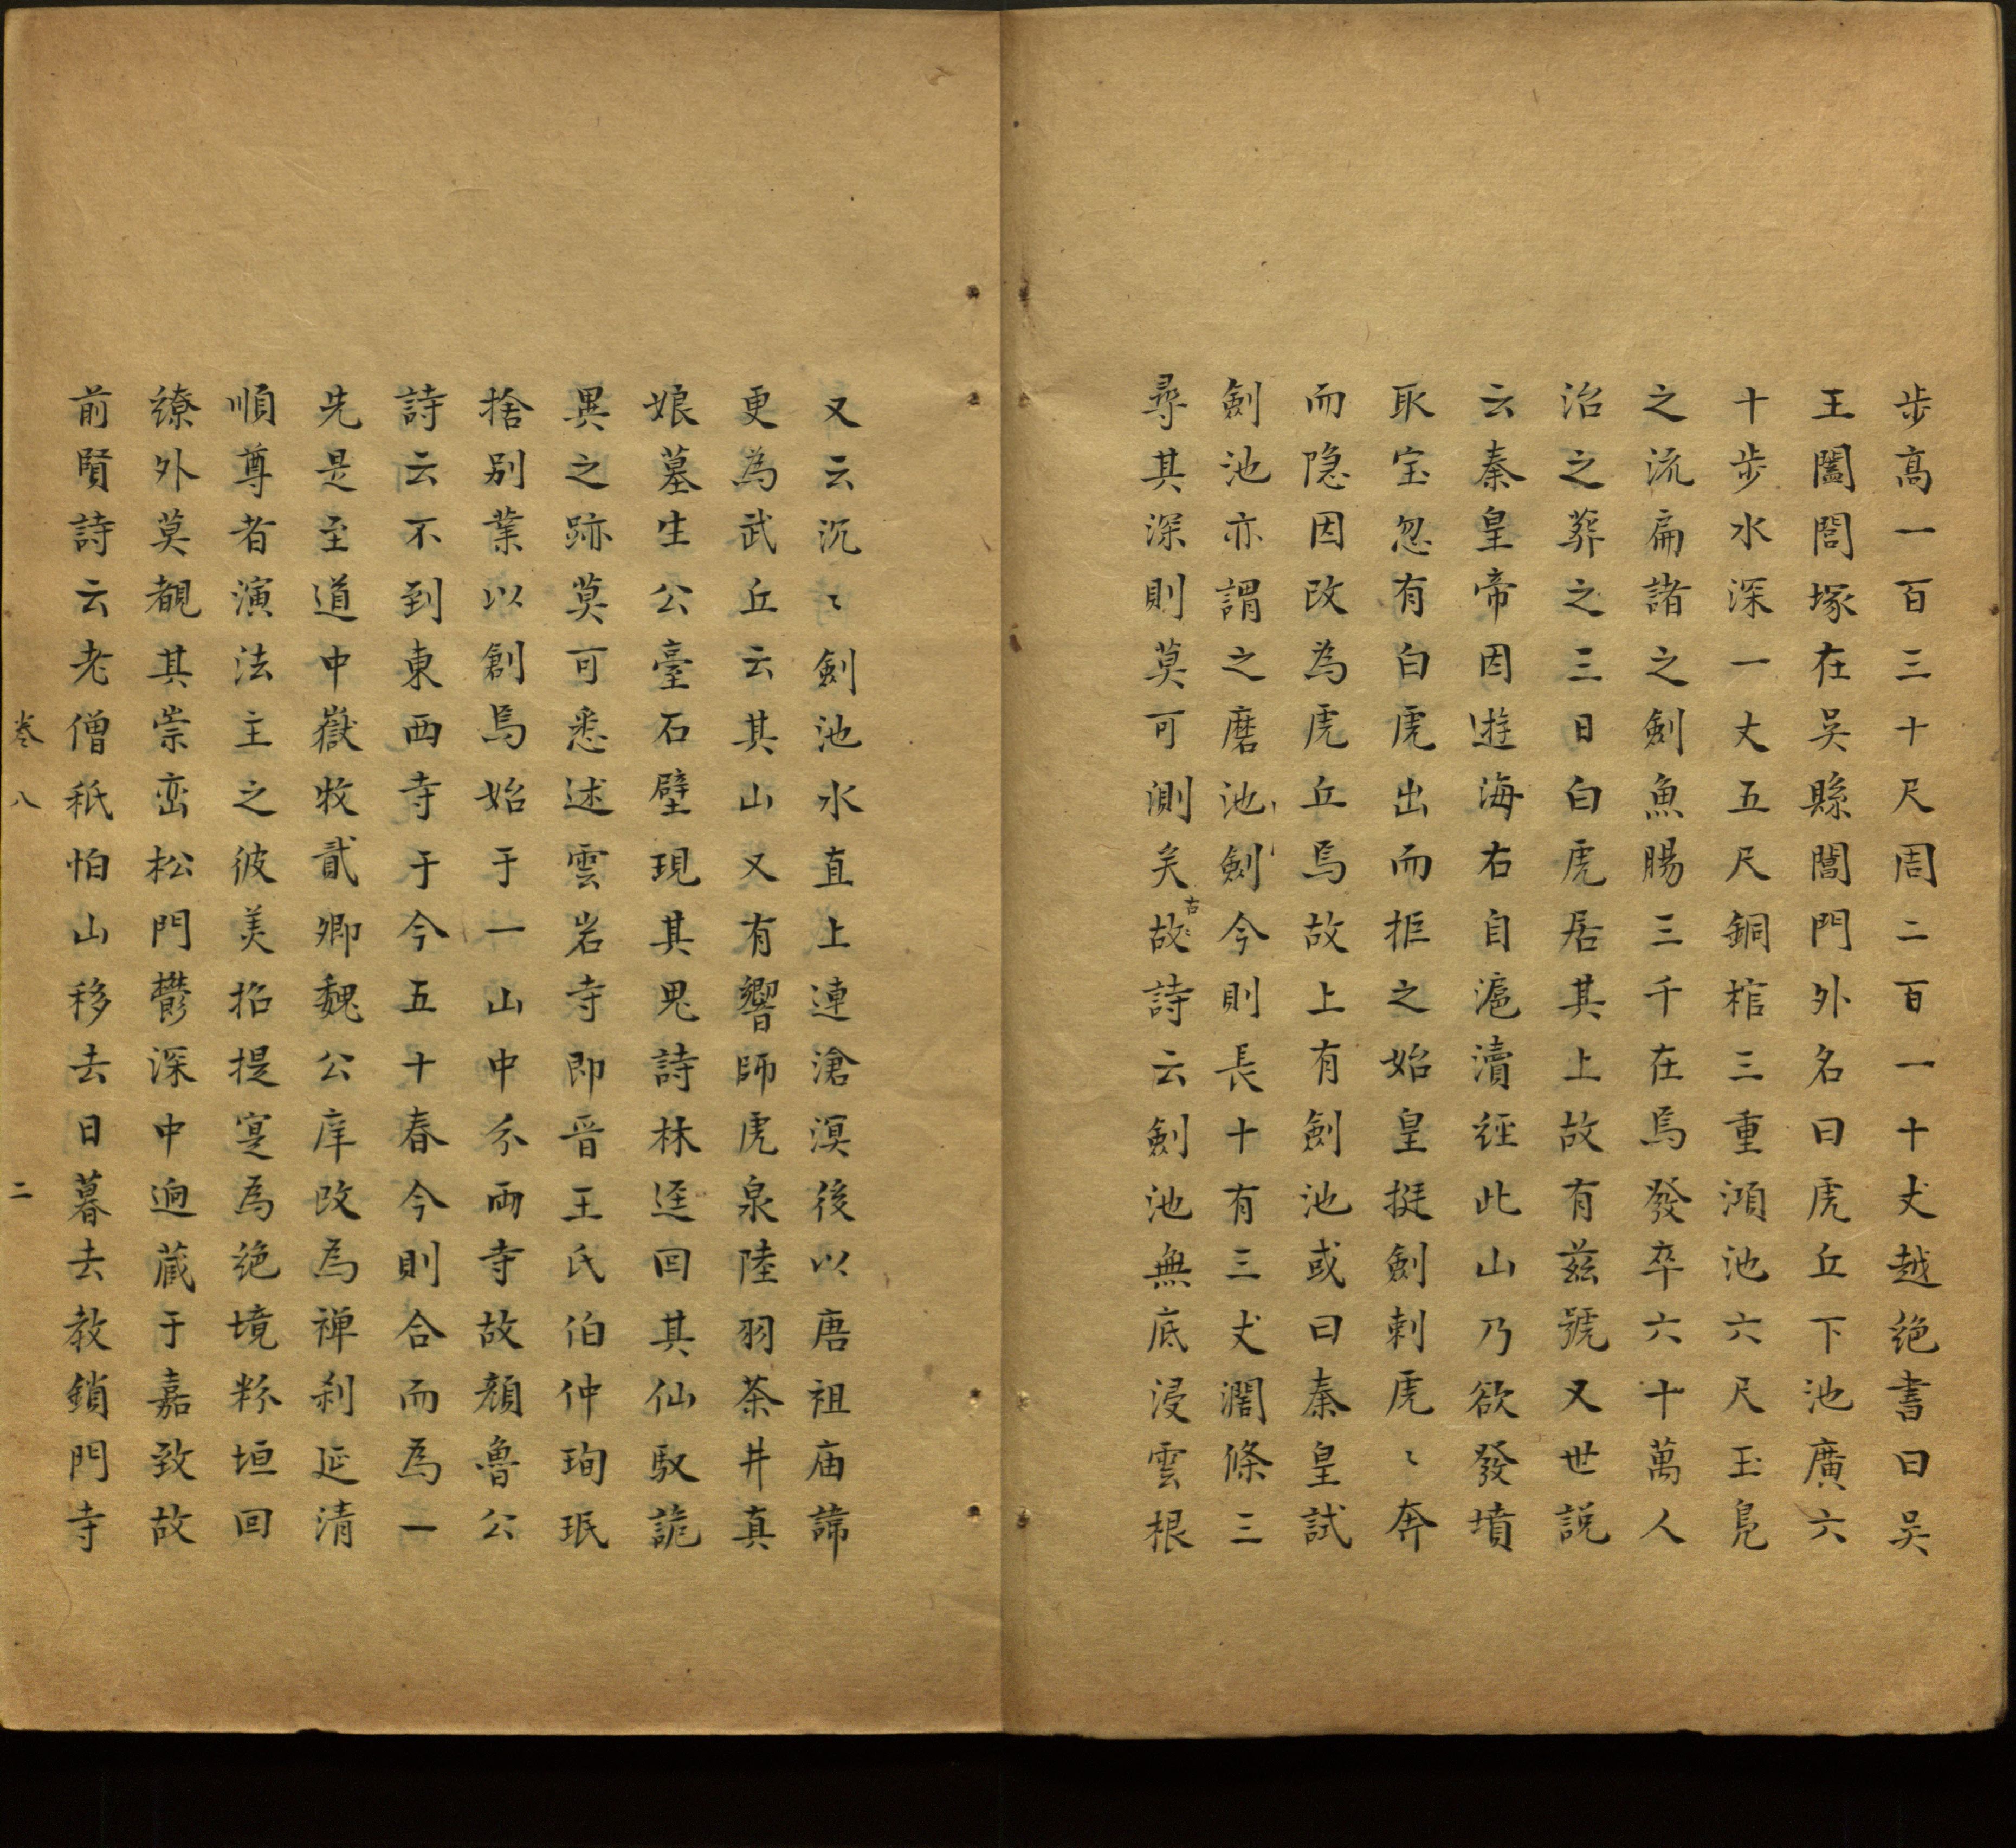 步高一百三十尺周二百一十丈越絶書曰吴
王闔閭塚在吴縣閶門外名曰虎丘下池廣六
十步水深一丈五尺銅棺三重澒池六尺玉鳬
之流扁諸之劍魚腸三千在焉發卒六十萬人
治之葬之三日白虎居其上故有兹號又世説
云秦皇帝因遊海右自滬瀆經此山乃欲發墳
取宝忽有白虎出而拒之始皇挺劍刺虎〻奔
而隐因改為虎丘焉故上有劍池或曰秦皇試
劍池亦謂之磨池劍今則長十有三丈濶條三
尋其深則莫可測矣故古詩云劍池無底浸雲根
又云沉〻劍池水直上連滄溟後以唐祖庙諱
更為武丘云其山又有響師虎泉陸羽茶井真
娘墓生公臺石壁現其鬼詩林迳回其仙馭詭
異之跡莫可悉述雲岩寺即晋王氏伯仲珣珉
捨别業以創焉始于一山中分两寺故顏魯公
詩云不到東西寺于今五十春今則合而為一
先是至道中嶽牧貳卿魏公庠改為禅刹延清
順尊者演法主之彼美招提寔為絶境粉垣回
繚外莫覩其崇峦松門鬱深中逈蔵于嘉致故
前賢詩云老僧秖怕山移去日暮去教鎖門寺
卷八
二